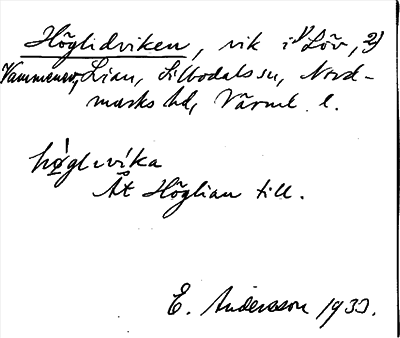 Höglidviken, vik i 1) Löv, 2)
Vammenæs, Lian, Sillbodals sn, Nord-
marks hd, Värml. l.
høglivika
Åt Höglian till.
E. Andersson 1933.